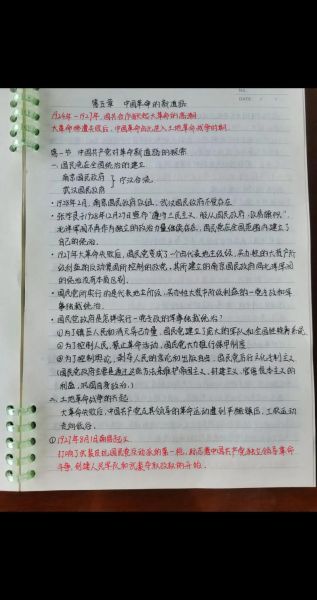 NO.
DATE / /
第五章 中国革命的新道路
1924年-1927年,国共合作掀起大革命的高潮
大革命惨遭失败后,中国革命由此进入土地革命战争时期.
第一节 中国共产党对革命新道路的探索
一.国民党在全国统治的建立
南京国民政府
武汉国民政府 } 宁汉合流.
·1928年2月,南京国民政府改组,武汉国民政府不复存在.
·张学良于1928年12月29日宣布"遵守三民主义,服从国民政府,改易旗帜".
北洋军阀不再作为独立的政治力量继续存在,国民党在全国范围内建立了
自己的统治.
·1927年大革命失败后,国民党变成了一个由代表地主阶级、买办性的大资产阶
级利益的反动集团所控制的政党,其所建立的南京国民政府同北洋军阀
的统治没有本质区别.
·国民党所实行的是代表地主阶级、买办性大资产阶级利益的一党专政和军
事独裁统治.
·国民政府是怎样实行一党专政的军事独裁统治?
①为了镇压人民和消灭异己力量,国民党建立了庞大的军队和全国性特务系统
②为了控制人民,禁止革命活动,国民党大力推行保甲制度
③为了控制舆论,剥夺人民的言论和出版自由,国民党厉行文化专制主义.
(国民党政府主要是通过这些方法来维护帝国主义、封建主义、官僚资本主义的
利益,巩固自身政治.)
二.土地革命战争的兴起
大革命失败后,中国共产党及其领导的革命运动遭到严酷镇压,工农运动
走向低谷.
①1927年8月1日南昌起义
打响了武装反抗国民党反动派的第一枪,标志着中国共产党独立领导革命
斗争、创建人民军队和武装夺取政权的开始.